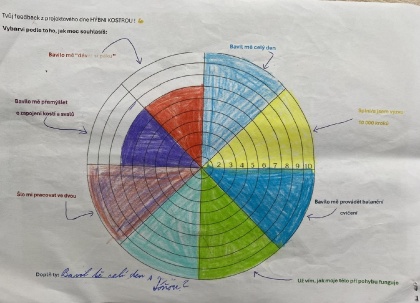 Tvůj feedback z projektového dne HÝBNI KOSTROU!
Vybarvi podle toho, jak moc souhlasíš:
Bavilo mě
Bavil mě celý den
Bavilo mě přemýšlet
o zapojení kostí a svalů
1 2 3 4 5 6 7 8 9 10
Šlo mi pracovat ve dvou
Bavilo mě provádět balanční
cvičení
Už vím, jak moje tělo při pohybu funguje
Doplň ty: Bavil mě celí den s